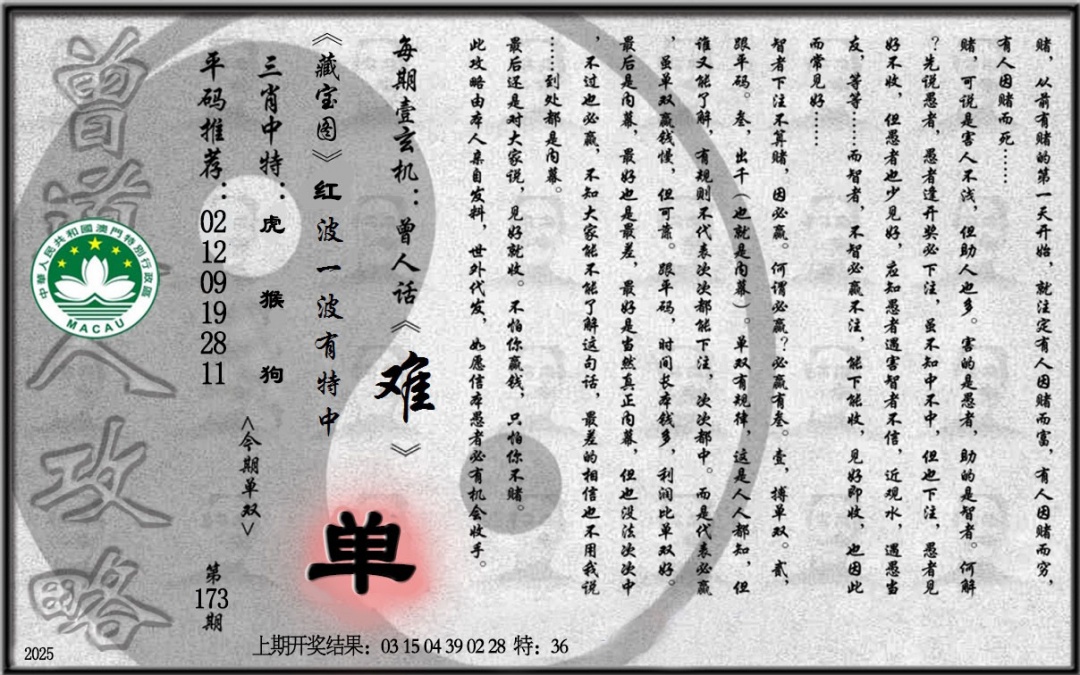 赌，从前有赌的第一天开始，就注定有人因赌而富，有人因赌而穷，
有人因赌而死……
赌，可说是害人不浅，但助人也多。害的是愚者，助的是智者。何解
？先说愚者，愚者逢开奖必下注，虽不知中不中，但也下注，愚者见
好不收，但愚者也少见好，应知愚者遇害智者不信，近观水，遇愚当
友，等等……而智者，不智必赢不注，能下能收，见好即收，也因此
而常见好……
智者下注不算赌，因必赢。何谓必赢？必赢有叁。壹，搏单双。贰，
跟平码。叁，出千（也就是内幕）。单双有规律，这是人人都知，但
谁又能了解，有规则不代表次次都能下注，次次都中。而是代表必赢
，虽单双赢钱慢，但可靠。跟平码，时间长本钱多，利润比单双好。
最后是内幕，最好也是最差，最好是当然真正内幕，但也没法次次中
，不过也必赢，不知大家能不能了解这句话，最差的相信也不用我说
……到处都是内幕。
最后还是对大家说，见好就收。不怕你赢钱，只怕你不赌。
此攻略由本人亲自发料，世外代发，如愿信本愚者必有机会收手。
每期壹玄机：曾人话《难》
《藏宝图》红波一波有特中
单
三肖中特：虎 猴 狗
<今期单双>
平码推荐：02 12 09 19 28 11
第173期
曾道人攻略
中華人民共和國澳門特別行政區
MACAU
上期开奖结果：03 15 04 39 02 28 特：36
2025